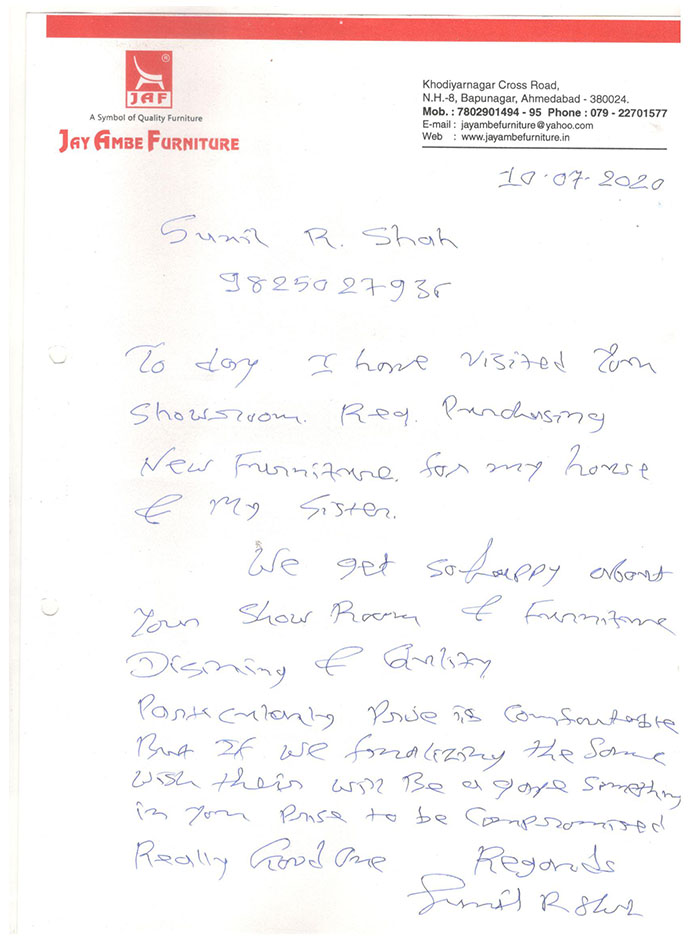 JAF
®
A Symbol of Quality Furniture
JAY AMBE FURNITURE
Khodiyarnagar Cross Road,
N.H.-8, Bapunagar, Ahmedabad - 380024.
Mob. : 7802901494 - 95 Phone : 079 - 22701577
E-mail : jayambefurniture@yahoo.com
Web : www.jayambefurniture.in
10-07-2020
Sunil R. Shah
To day I have visited Your
Showsroom. Req. Purchasing
New Furniture. for my house
& My Sister.
We get so happy about
Your Show Room & Furniture
Disining & Qulity
Particularly Price is Comfortable
But If we finalizing the Same
wish their will Be a gape Something
in your Prise to be Compromised
Really Good One Regards
Sunil R Shah